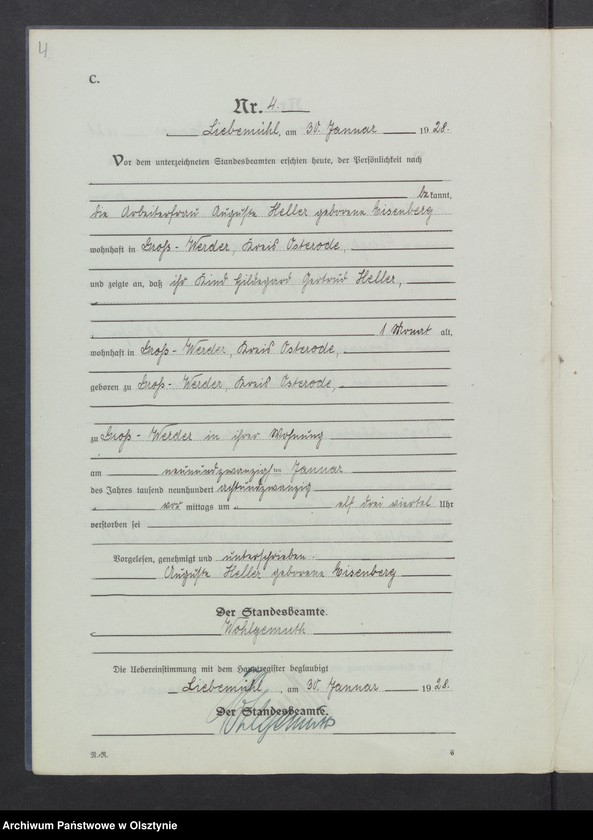 4
C.
Nr. 4.
Liebemühl, am 30. Januar 1928.
Vor dem unterzeichneten Standesbeamten erschien heute, der Persönlichkeit nach
bekannt,
die Arbeiterfrau Auguste Heller geborene Eisenberg
wohnhaft in Groß-Werder, Kreis Osterode,
und zeigte an, daß ihr Kind Hildegard Gertrud Heller,
1 Monat alt,
wohnhaft in Groß-Werder, Kreis Osterode,
geboren zu Groß-Werder, Kreis Osterode,
zu Groß-Werder in ihrer Wohnung
am neunundzwanzigsten Januar
des Jahres tausend neunhundert achtundzwanzig
vor mittags um elf drei viertel Uhr
verstorben sei
Vorgelesen, genehmigt und unterschrieben.
Auguste Heller geborene Eisenberg
Der Standesbeamte.
Wohlgemuth
Die Uebereinstimmung mit dem Hauptregister beglaubigt
Liebemühl, am 30. Januar 1928.
Der Standesbeamte.
Wohlgemuth
R.-R. 6
Archiwum Państwowe w Olsztynie